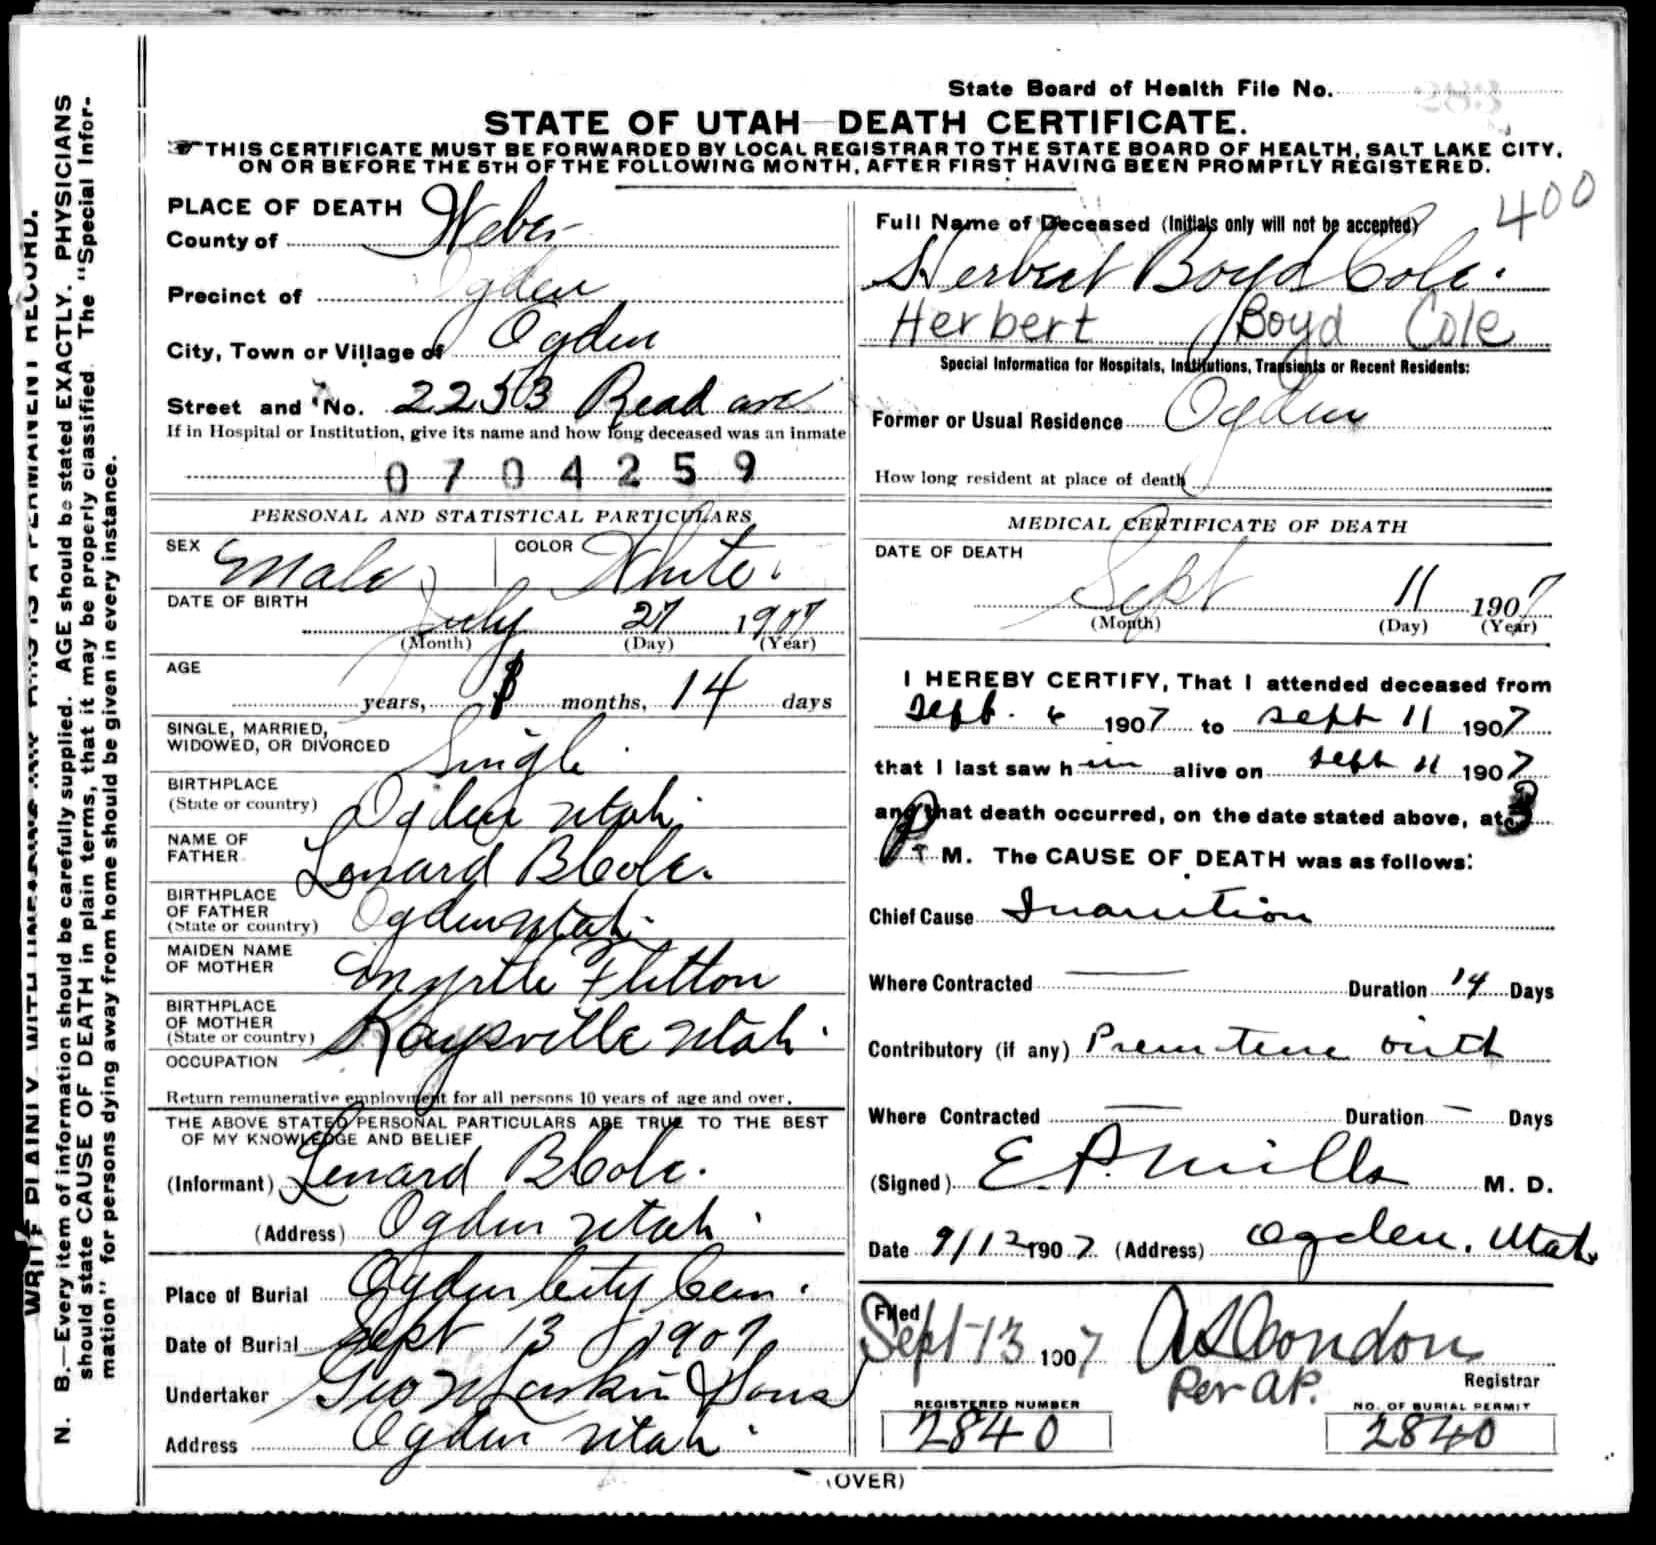 State Board of Health File No. 283
STATE OF UTAH—DEATH CERTIFICATE.
☞THIS CERTIFICATE MUST BE FORWARDED BY LOCAL REGISTRAR TO THE STATE BOARD OF HEALTH, SALT LAKE CITY,
ON OR BEFORE THE 5TH OF THE FOLLOWING MONTH, AFTER FIRST HAVING BEEN PROMPTLY REGISTERED.
PLACE OF DEATH
County of Weber
Precinct of Ogden
City, Town or Village of Ogden
Street and No. 2253 Read ave
If in Hospital or Institution, give its name and how long deceased was an inmate
0704259
PERSONAL AND STATISTICAL PARTICULARS
SEX Male COLOR White.
DATE OF BIRTH
July 27 1907
(Month) (Day) (Year)
AGE
years, 1 months, 14 days
SINGLE, MARRIED,
WIDOWED, OR DIVORCED Single
BIRTHPLACE
(State or country) Ogden Utah.
NAME OF
FATHER Lenard B Cole.
BIRTHPLACE
OF FATHER
(State or country) Ogden Utah.
MAIDEN NAME
OF MOTHER Myrtle Flitton
BIRTHPLACE
OF MOTHER
(State or country) Kaysville Utah.
OCCUPATION
Return remunerative employment for all persons 10 years of age and over.
THE ABOVE STATED PERSONAL PARTICULARS ARE TRUE TO THE BEST
OF MY KNOWLEDGE AND BELIEF
(Informant) Lenard B Cole.
(Address) Ogden Utah.
Place of Burial Ogden City Cem.
Date of Burial Sept 13 1907
Undertaker Geo W Larkin & Sons
Address Ogden Utah.
400
Full Name of Deceased (Initials only will not be accepted)
Herbert Boyd Cole.
Herbert Boyd Cole
Special Information for Hospitals, Institutions, Transients or Recent Residents:
Former or Usual Residence Ogden
How long resident at place of death
MEDICAL CERTIFICATE OF DEATH
DATE OF DEATH
Sept 11 1907
(Month) (Day) (Year)
I HEREBY CERTIFY, That I attended deceased from
Sept. 6 1907 to Sept 11 1907
that I last saw him alive on Sept 11 1907
and that death occurred, on the date stated above, at 3
P. M. The CAUSE OF DEATH was as follows:
Chief Cause Inanition
Where Contracted — Duration 14 Days
Contributory (if any) Premature birth
Where Contracted — Duration — Days
(Signed) E. P. Mills M. D.
Date 9/12 1907 (Address) Ogden, Utah
Filed
Sept-13 1907 A S Condon
Registrar
Per AP.
REGISTERED NUMBER
2840
NO. OF BURIAL PERMIT
2840
(OVER)
N. B.—Every item of information should be carefully supplied. AGE should be stated EXACTLY. PHYSICIANS
should state CAUSE OF DEATH in plain terms, that it may be properly classified. The "Special Infor-
mation" for persons dying away from home should be given in every instance.